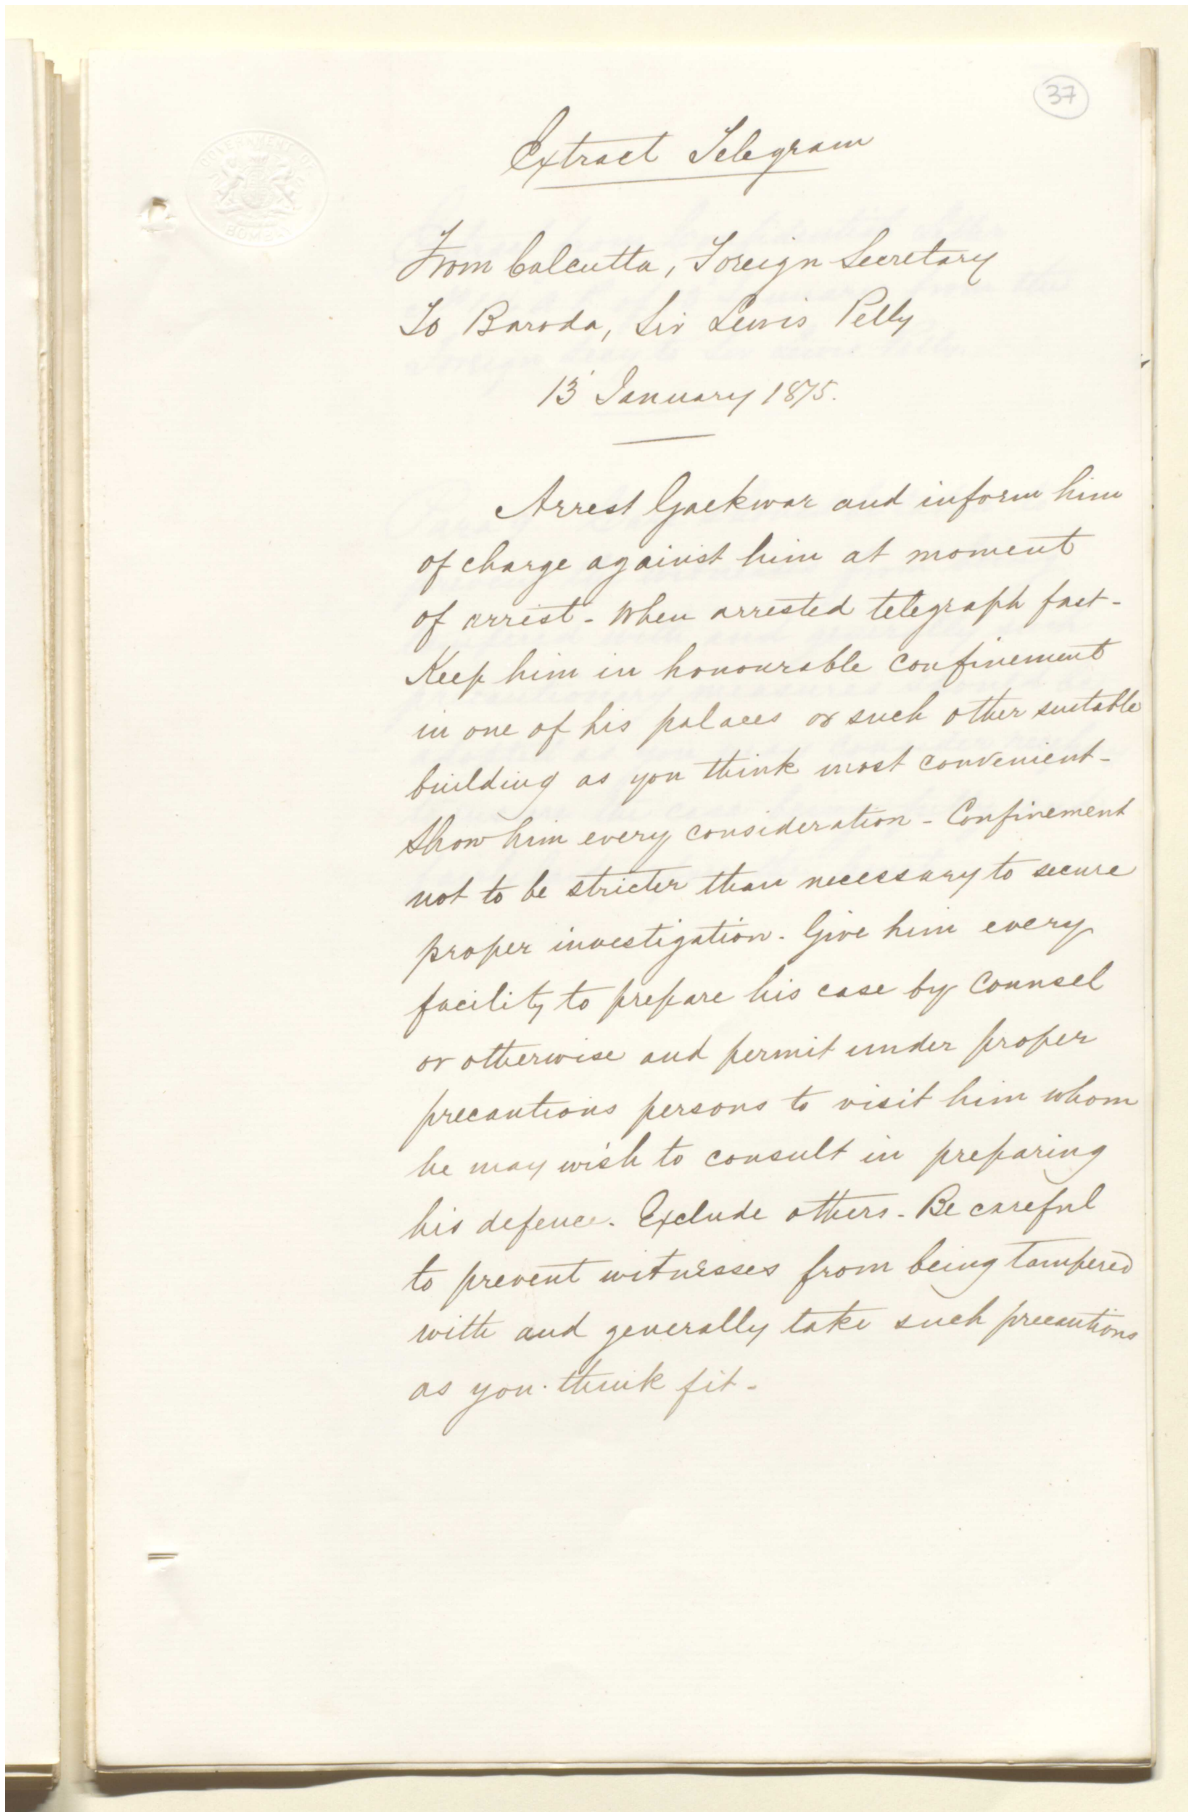 37
GOVERNMENT OF
BOMBAY
Extract Telegram
From Calcutta, Foreign Secretary
To Baroda, Sir Lewis Pelly
13 January 1875.
Arrest Gaekwar and inform him
of charge against him at moment
of arrest - When arrested telegraph fact -
Keep him in honourable confinement
in one of his palaces or such other suitable
building as you think most convenient -
Show him every consideration - Confinement
not to be stricter than necessary to secure
proper investigation. Give him every
facility to prepare his case by Counsel
or otherwise and permit under proper
precautions persons to visit him whom
he may wish to consult in preparing
his defence. Exclude others - Be careful
to prevent witnesses from being tampered
with and generally take such precautions
as you think fit -